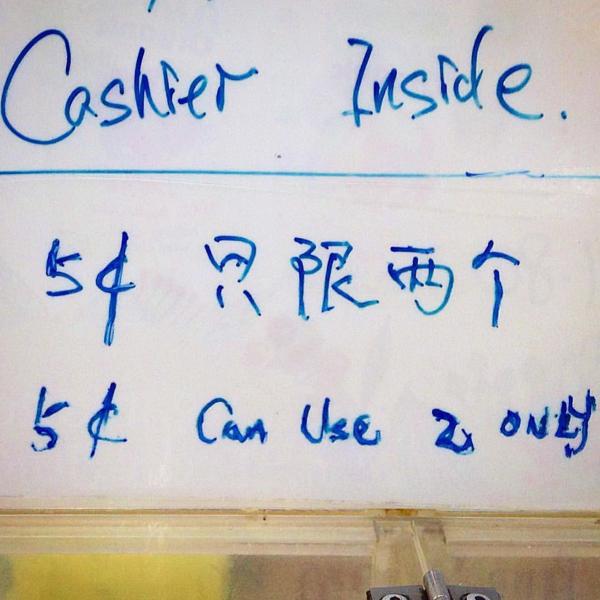 Cashier Inside.
5¢ 只限两个
5¢ Can Use 2 ONLY